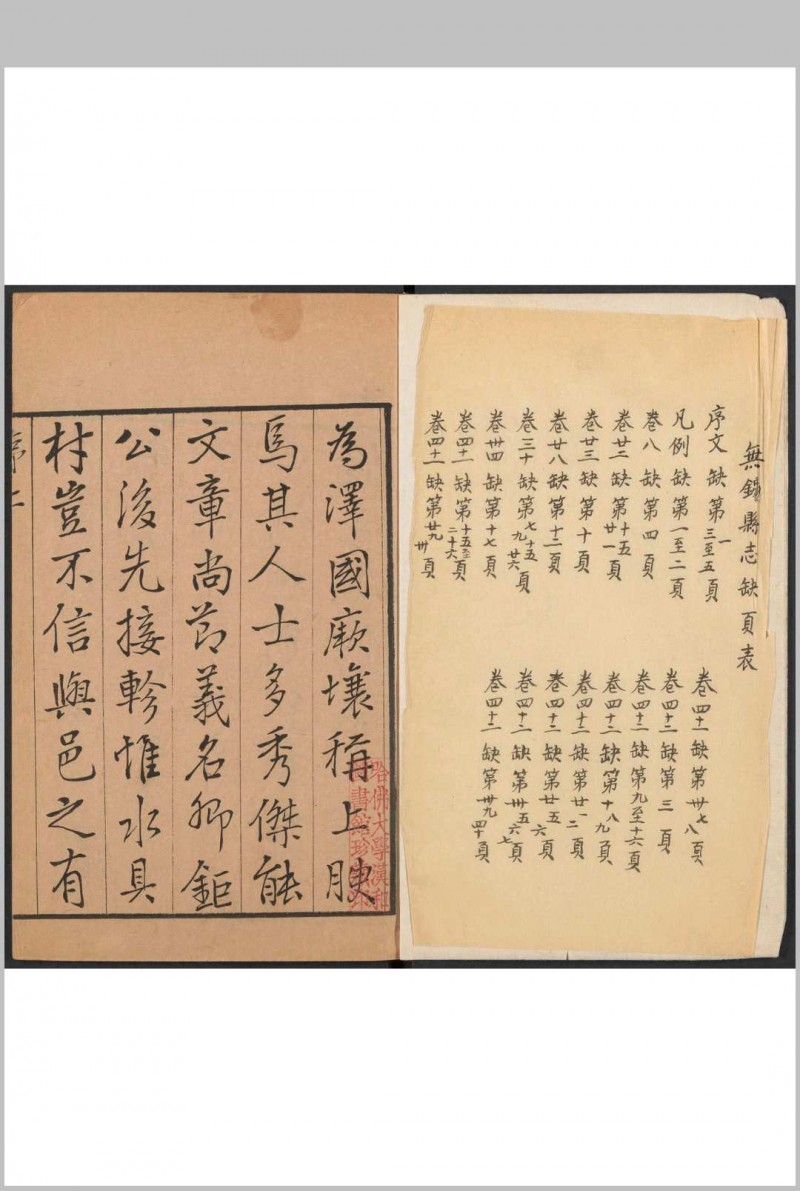 無錫縣志缺頁表
序文 缺第一三至五頁
凡例 缺第一至二頁
卷八 缺第四頁
卷廿二 缺第十五廿一頁
卷廿三 缺第十頁
卷廿八 缺第十二頁
卷三十 缺第七十五九廿六頁
卷卅四 缺第十七頁
卷四十一 缺第十五二十六頁
卷四十一 缺第廿九卅頁
卷四十一 缺第卅七八頁
卷四十二 缺第三頁
卷四十二 缺第九至十六頁
卷四十二 缺第十八九頁
卷四十二 缺第廿一二頁
卷四十二 缺第廿五六頁
卷四十二 缺第卅五六七頁
卷四十二 缺第卅九四十頁
為澤國厥壤稱上腴
焉其人士多秀傑能
文章尚節義名卿鉅
公後先接軫惟水具
材豈不信與邑之有
序二
哈佛大學漢和
圖書館珍藏印